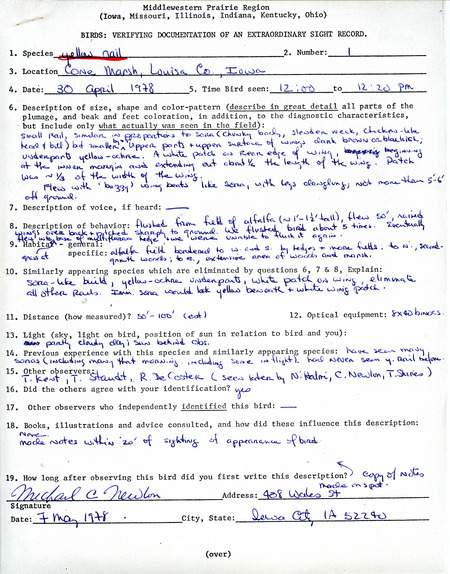 Middlewestern Prairie Region
(Iowa, Missouri, Illinois, Indiana, Kentucky, Ohio)
BIRDS: VERIFYING DOCUMENTATION OF AN EXTRAORDINARY SIGHT RECORD.
1. Species yellow rail 2. Number: 1
3. Location Cone Marsh, Louisa Co., Iowa
4. Date: 30 April 1978 5. Time Bird seen: 12:00 to 12:20 pm
6. Description of size, shape and color-pattern (describe in great detail all parts of the
plumage, and beak and feet coloration, in addition to, the diagnostic characteristics,
but include only what actually was seen in the field):
small rail, similar in proportions to sora (chunky body, slender neck, chicken-like
head + bill) but smaller. Upper parts + upper surface of wings dark brown or blackish;
underparts yellow-ochre. A white patch on rear edge of wing, beginning
at the inner margin and extending out about ½ the length of the wing. Patch
was ~ ⅓ of the width of the wing.
Flew with "buzzy" wing beats like sora, with legs dangling, not more than 5-6'
off ground.
7. Description of voice, if heard: —
8. Description of behavior: flushed from field of alfalfa (~1'-1½' tall), flew 50', raised
wings over back + pitched sharply to ground. We flushed bird about 5 times. Eventually
flew into base of multiflora hedge + we were unable to flush it again.
9. Habitat - general:
specific: alfalfa field bordered to w. and s. by hedges + more fields; to n., second-
growth woods; to e., extensive area of woods and marsh.
10. Similarly appearing species which are eliminated by questions 6, 7 & 8, Explain:
sora-like build, yellow-ochre underparts, white patch on wing, eliminate
all other rails. Imm. sora would lack yellow beneath + white wing patch.
11. Distance (how measured)? 50'-100' (est) 12. Optical equipment: 8x40 binocs.
13. Light (sky, light on bird, position of sun in relation to bird and you):
partly cloudy day; sun behind obs.
14. Previous experience with this species and similarly appearing species: have seen many
soras (including many that morning, including some in flight). Had never seen y. rail before.
15. Other observers:
T. Kent, T. Staudt, R. DeCoster (seen later by N. Halmi, C. Newlon, T. Shires)
16. Did the others agree with your identification? yes
17. Other observers who independently identified this bird: —
18. Books, illustrations and advice consulted, and how did these influence this description:
None.
made notes within 20' of sighting of appearance of bird.
19. How long after observing this bird did you first write this description? copy of notes
made on spot.
Michael C. Newlon Address: 408 Wales St
Signature
Date: 7 May 1978 City, State: Iowa City, IA 52240
(over)